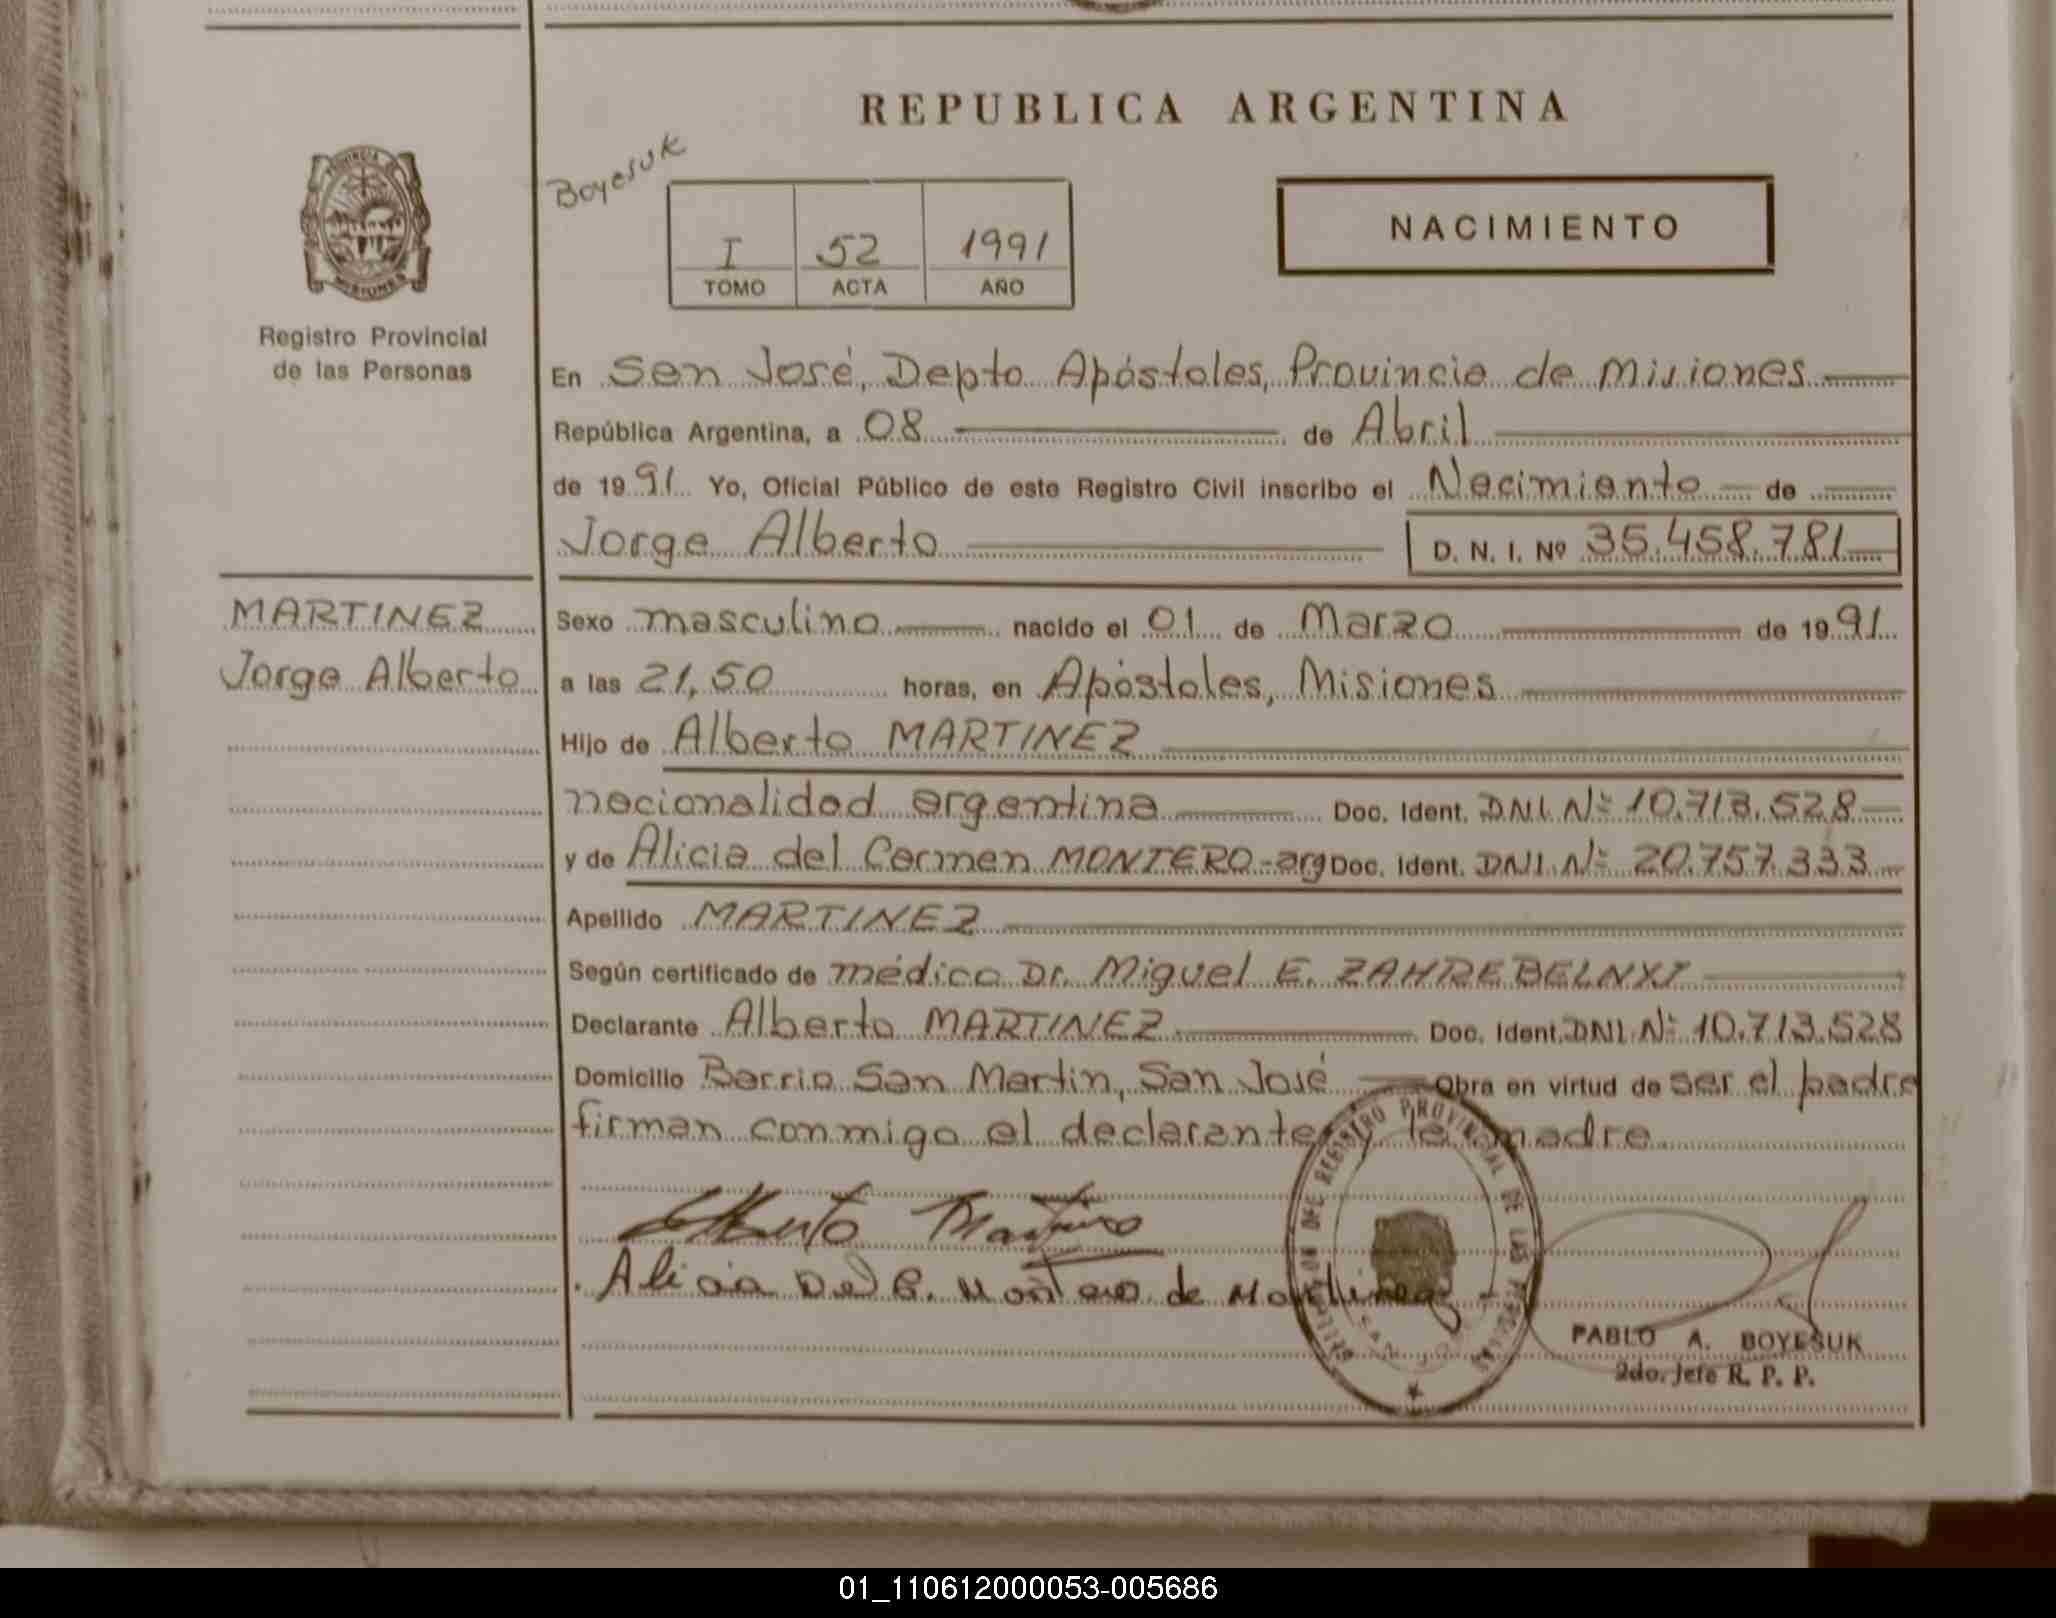 REPUBLICA ARGENTINA
Boyesuk
I 52 1991
TOMO ACTA AÑO
NACIMIENTO
PROVINCIA DE
MISIONES
Registro Provincial
de las Personas
En San José, Depto Apóstoles, Provincia de Misiones
República Argentina, a 08 de Abril
de 1991 Yo, Oficial Público de este Registro Civil inscribo el Nacimiento de
Jorge Alberto D. N. I. Nº 35.458.781
MARTINEZ
Jorge Alberto
Sexo masculino nacido el 01 de Marzo de 1991
a las 21,50 horas, en Apóstoles, Misiones
Hijo de Alberto MARTINEZ
nacionalidad argentina Doc. Ident. DNI. Nº 10.713.528
y de Alicia del Carmen MONTERO-arg Doc. Ident. DNI. Nº 20.757.333
Apellido MARTINEZ
Según certificado de médico Dr. Miguel E.
Declarante Alberto MARTINEZ Doc. Ident. DNI. Nº 10.713.528
Domicilio Barrio San Martin, San José Obra en virtud de ser el padre
firman conmigo el declarante y la madre
Alberto Martinez
Alicia Del C. Montero de Martinez
REGISTRO PROVINCIAL DE LAS
PABLO A. BOYESUK
2do. Jefe R. P. P.
01_110612000053-005686